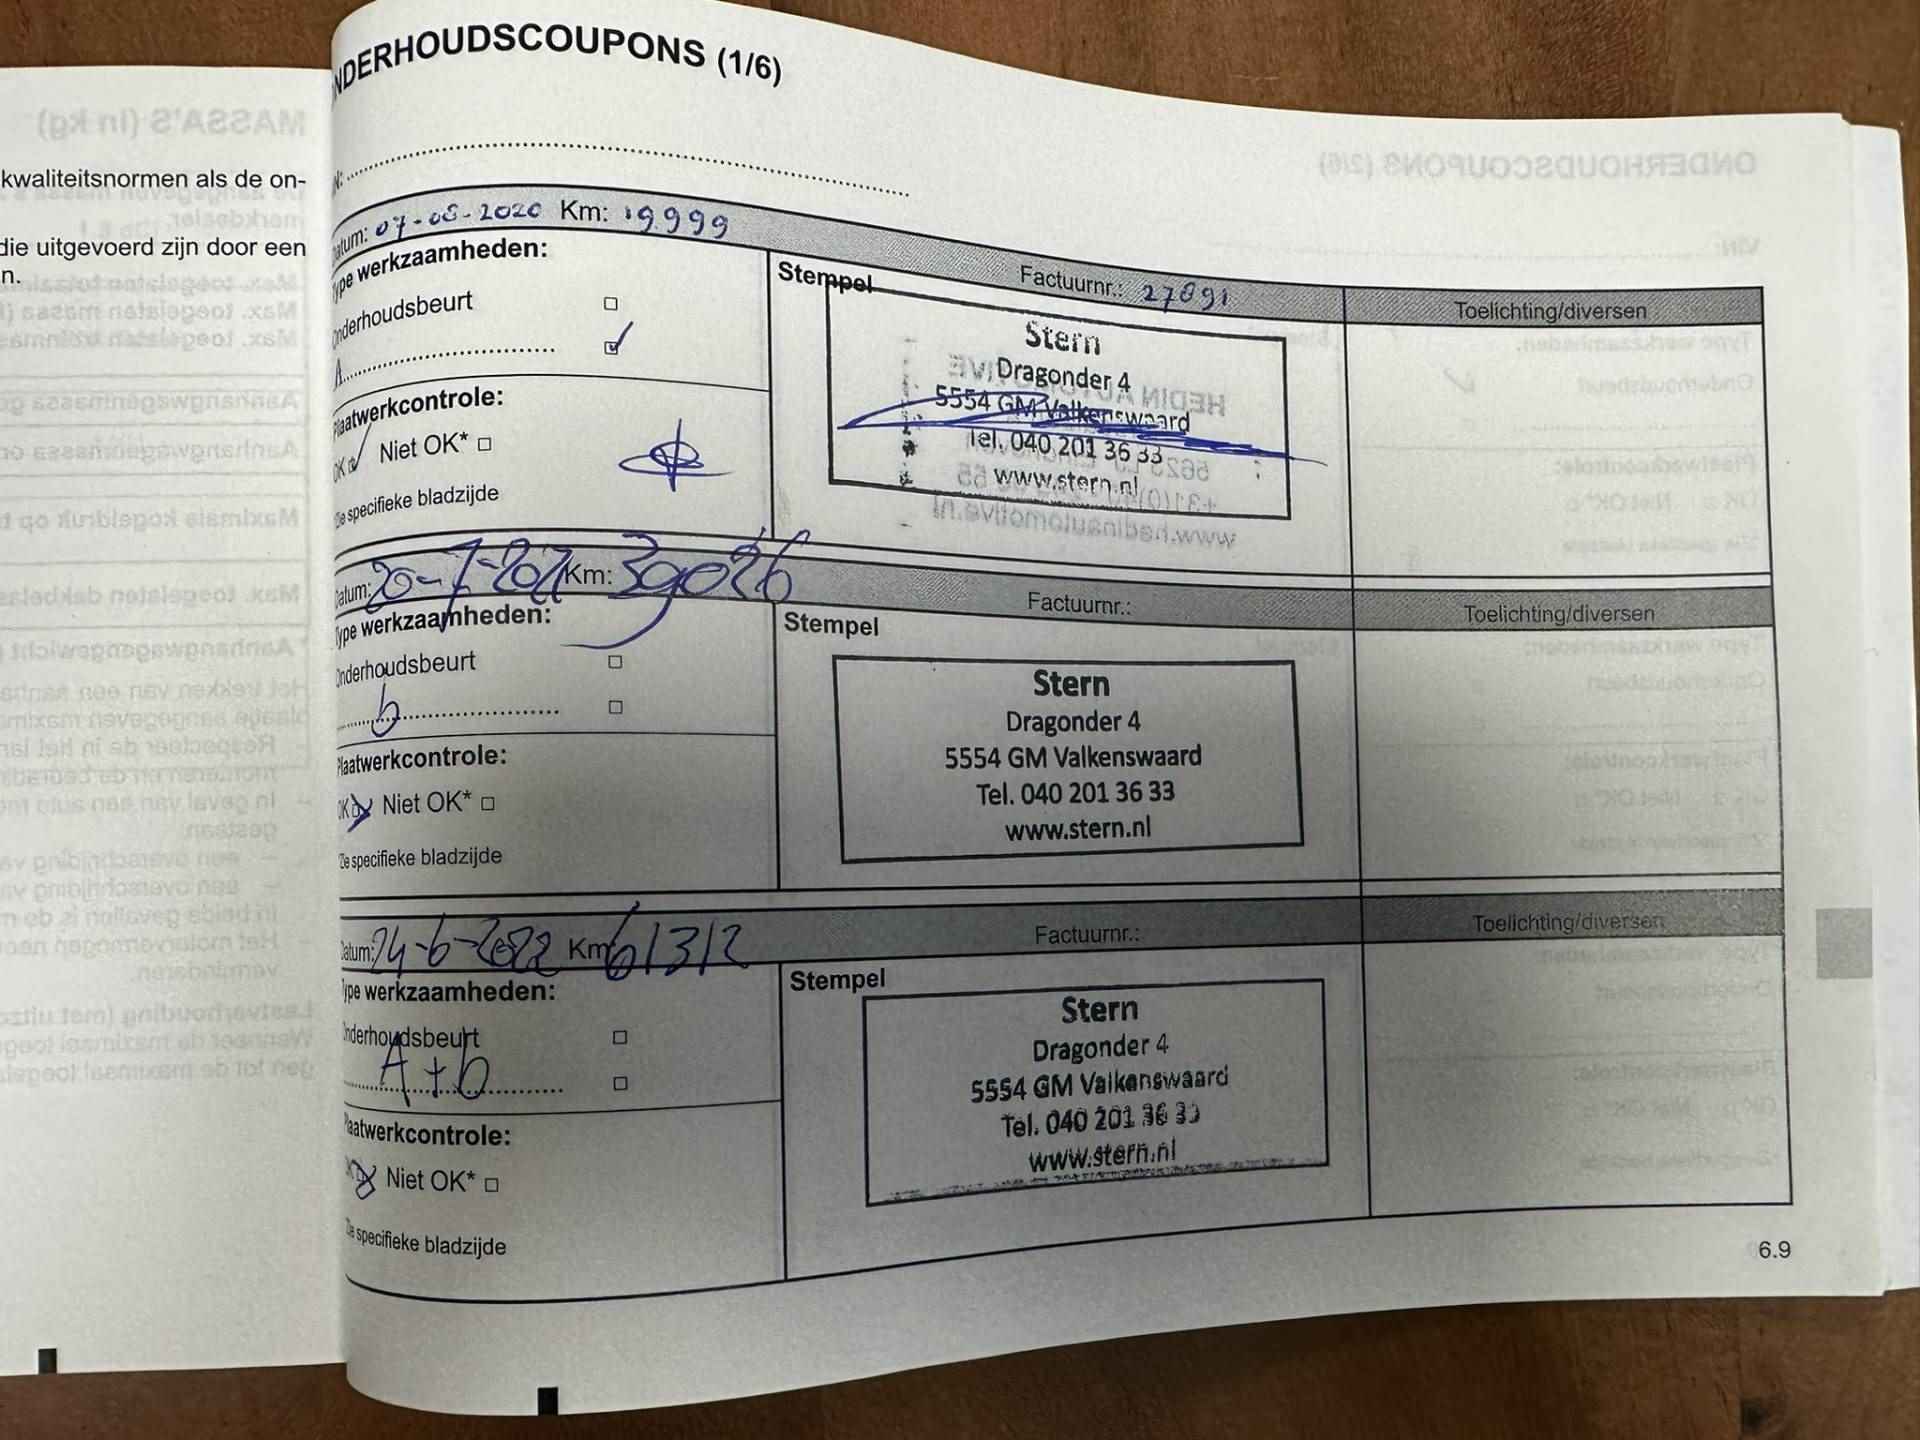 MASSA'S (in kg)
kwaliteitsnormen als de on-
die uitgevoerd zijn door een
n.
NDERHOUDSCOUPONS (1/6)
ONDERHOUDSCOUPONS (2/6)
VIN:
Datum: 07-08-2020 Km: 19999
Factuurnr.: 27891
Toelichting/diversen
Type werkzaamheden:
Onderhoudsbeurt
A
Plaatwerkcontrole:
OK Niet OK*
*Zie specifieke bladzijde
Stempel
Stern
Dragonder 4
5554 GM Valkenswaard
Tel. 040 201 36 33
www.stern.nl
HEDIN AUTOMOTIVE
www.hedinautomotive.nl
Datum: 20-7-2021 Km: 39026
Factuurnr.:
Toelichting/diversen
Type werkzaamheden:
Onderhoudsbeurt
b
Plaatwerkcontrole:
OK Niet OK*
*Zie specifieke bladzijde
Stempel
Stern
Dragonder 4
5554 GM Valkenswaard
Tel. 040 201 36 33
www.stern.nl
Datum: 24-6-2022 Km: 61312
Factuurnr.:
Toelichting/diversen
Type werkzaamheden:
Onderhoudsbeurt
A+b
Plaatwerkcontrole:
OK Niet OK*
*Zie specifieke bladzijde
Stempel
Stern
Dragonder 4
5554 GM Valkenswaard
Tel. 040 201 36 33
www.stern.nl
6.9